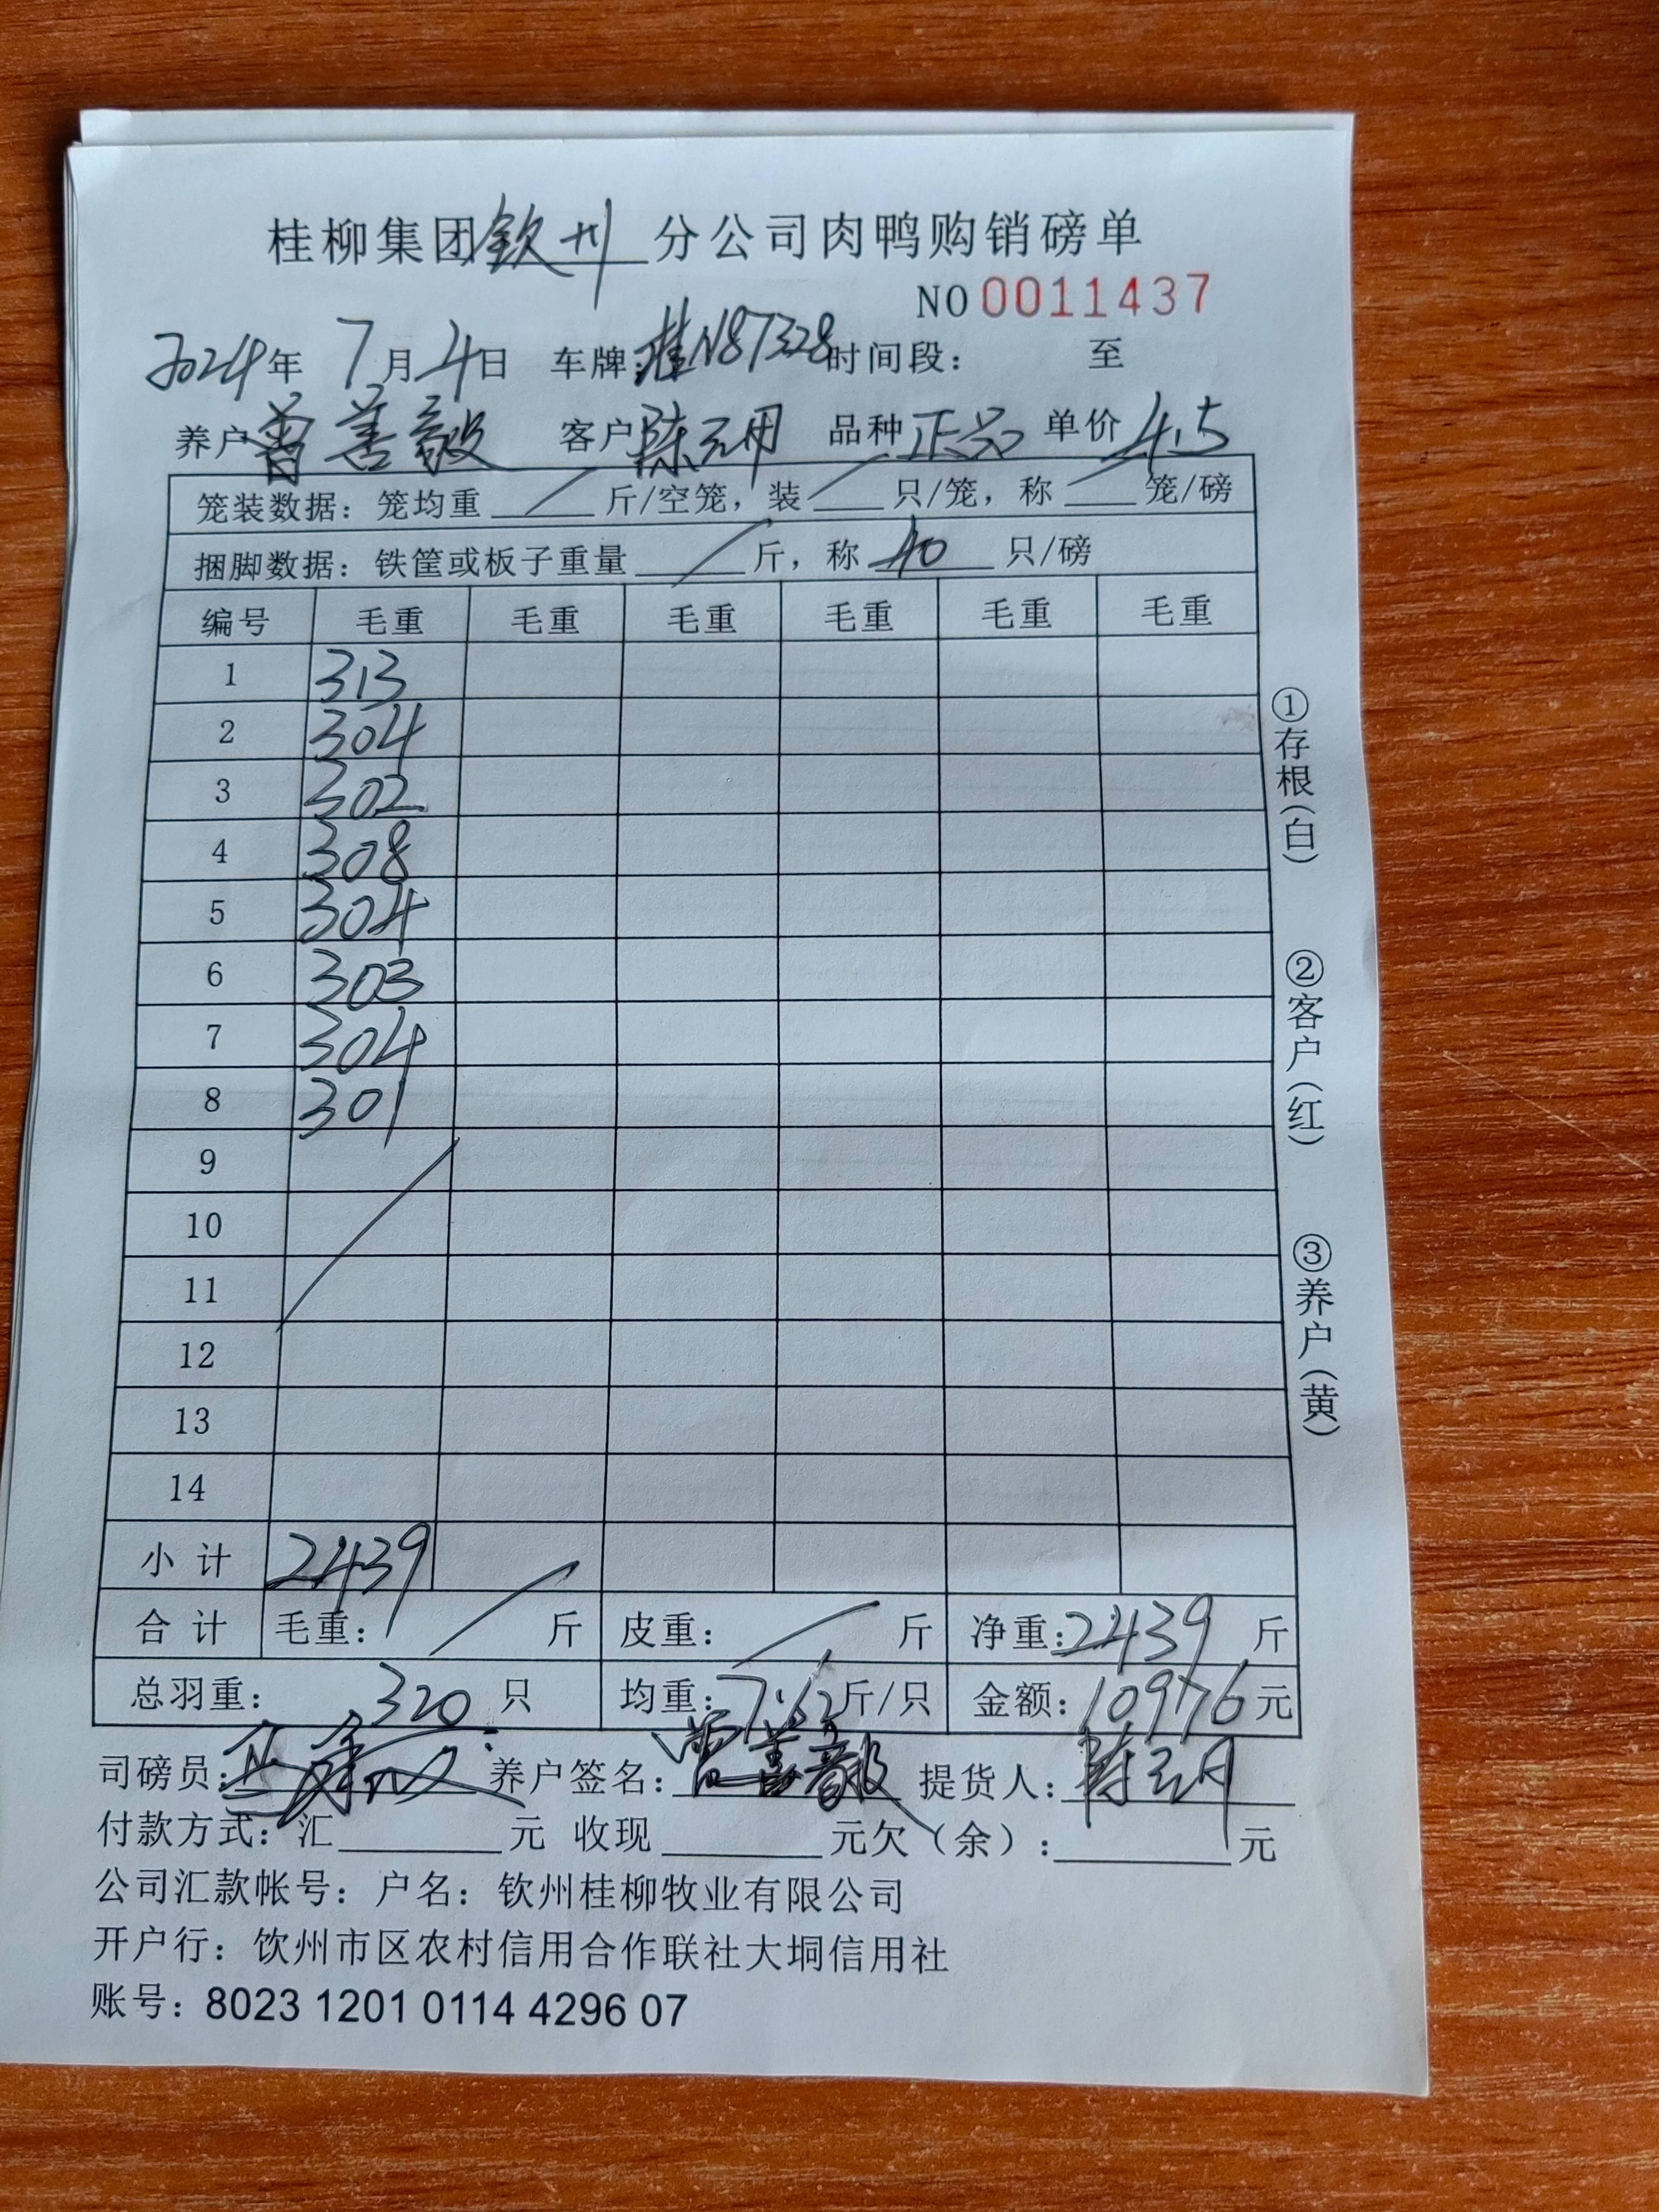 桂柳集团钦州分公司肉鸭购销磅单
NO 0011437
2024年 7月4日 车牌:桂N87328 时间段: 至
养户曾善毅 客户陈云明 品种正品 单价4.5
笼装数据: 笼均重 / 斤/空笼, 装 / 只/笼, 称 / 笼/磅
捆脚数据: 铁筐或板子重量 / 斤, 称 40 只/磅
编号 毛重 毛重 毛重 毛重 毛重 毛重
1 313
2 304
3 302
4 308
5 304
6 303
7 304
8 301
9
10
11
12
13
14
小计 2439
合计 毛重: / 斤 皮重: / 斤 净重:2439 斤
总羽重: 320 只 均重:7.62斤/只 金额:10976元
司磅员: 养户签名: 曾善毅 提货人:陈云明
付款方式: 汇 元 收现 元欠(余): 元
公司汇款帐号: 户名: 钦州桂柳牧业有限公司
开户行: 钦州市区农村信用合作联社大垌信用社
账号: 8023 1201 0114 4296 07
①存根(白)
②客户(红)
③养户(黄)